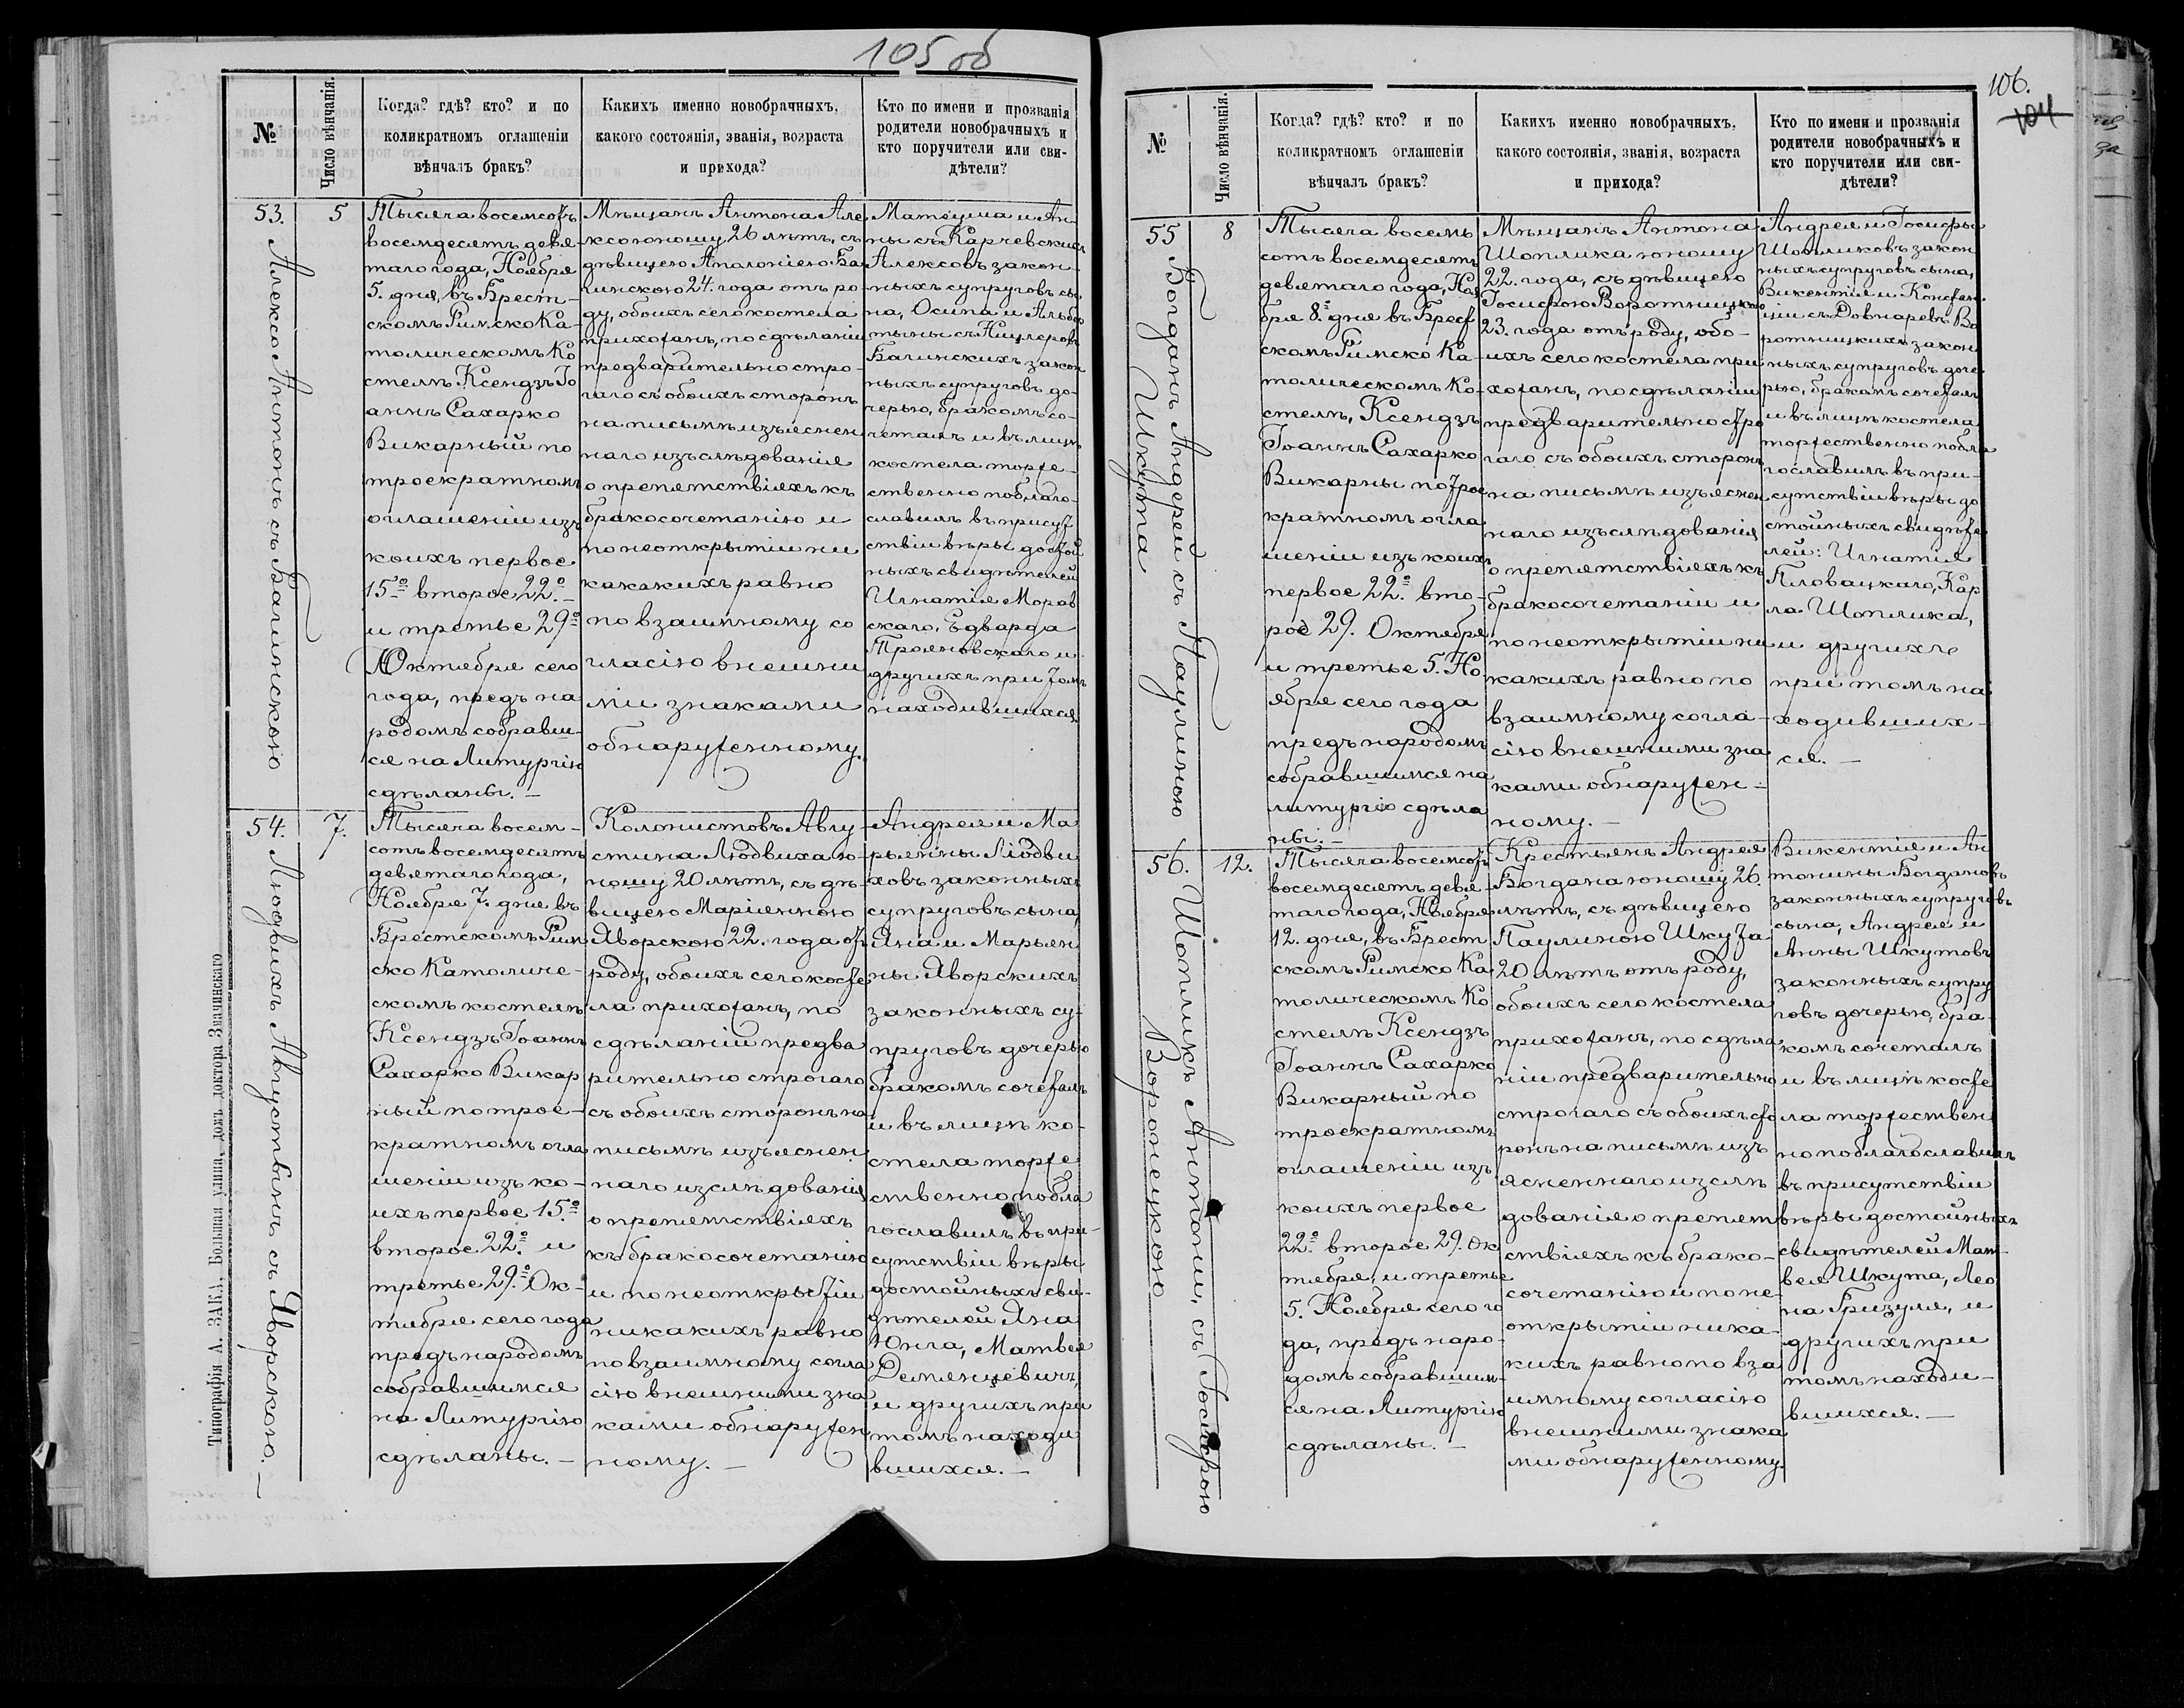 105 об
№
Число вѣнчанія.
Когда? гдѣ? кто? и по
коликратномъ оглашеніи
вѣнчалъ бракъ?
Какихъ именно новобрачныхъ,
какого состоянія, званія, возраста
и прихода?
Кто по имени и прозванія
родители новобрачныхъ и
кто поручители или сви-
дѣтели?
53.
Алекса Антонъ съ Багинскою
5
Тысяча восемсотъ
восемдесятъ девя-
таго года, Ноября
5. дня, въ Брест-
скомъ Римско Ка-
толическомъ Ко
стелѣ Ксендзъ Іо
аннъ Сахарко
Викарный по
троекратномъ
оглашеніи изъ
коихъ первое
15º второе 22º
и третье 29º
Октября сего
года, предъ на
родомъ собравш-
ся на Литургію
сдѣланы. —
Мѣщанъ Антона Але
ксо юношу 26 лѣтъ, съ
дѣвицею Аполоніею Ба
гинскою 24. года отъ ро-
ду, обоихъ сего костела
прихожанъ, по сдѣланіи
предварительно стро-
гаго съ обоихъ сторонъ
на письмѣ изъяснен
наго изъслѣдованія
о препятствіяхъ къ
бракосочетанію и
по неоткрытіи ни
какакихъ равно
по взаимному со
гласію внешни
ми знаками
обнаруженному.
Матоуша и Ан
ны съ Карчевскихъ
Алексовъ закон-
ныхъ супруговъ сы
на, Осипа и Альбер
тыны съ Ницлеровъ
Багинскихъ закон
ныхъ супруговъ до-
черью, бракомъ со-
четалъ и въ лицѣ
костела торже-
ственно поблаго-
славилъ въ присут
ствіи вѣры достой
ныхъ свидѣтелей
Игнатія Морав
скаго, Едварда
Трояновскаго и
другихъ при томъ
находившихся.
54.
Людвихъ Августынъ съ Яворскою. —
7.
Тысяча восем-
сотъ восемдесятъ
девятаго года,
Ноября 7. дня въ
Брестскомъ Рим
ско Католиче-
скомъ костелѣ
Ксендзъ Іоаннъ
Сахарко Викар
ный по трое-
кратномъ огла
шеніи изъ ко-
ихъ первое 15º
второе 22º и
третье 29º Ок-
тября сего года
предъ народомъ
собравшимся
на Литургію
сдѣланы. —
Колонистовъ Авгу
стина Людвиха ю-
ношу 20 лѣтъ, съ дѣ-
вицею Маріянною
Яворскою 22. года отъ
роду, обоихъ сего косте
ла прихожанъ, по
сдѣланіи предва
рительно строгаго
съ обоихъ сторонъ на
письмѣ изъяснен
наго изслѣдованія
о препятствіяхъ
къ бракосочетанію
и по неоткрытіи
никакихъ равно
по взаимному согла
сію внешними зна
ками обнаружен
ному. —
Андрея и Ма
рьянны Людви
ховъ законныхъ
супруговъ сына,
Яна и Марьян
ны Яворскихъ
законныхъ су-
пруговъ дочерью
бракомъ сочеталъ
и въ лицѣ ко-
стела торже
ственно побла
гославилъ въ при-
сутствіи вѣры
достойныхъ сви-
дѣтелей Яна
Юнга, Матвея
Демянцевичъ,
и другихъ при
томъ находи
вшихся. —
Типографія А. ЗАКА, Большая улица, домъ доктора Значинскаго
106.
104
№
Число вѣнчанія.
Когда? гдѣ? кто? и по
коликратномъ оглашеніи
вѣнчалъ бракъ?
Какихъ именно новобрачныхъ,
какого состоянія, званія, возраста
и прихода?
Кто по имени и прозванія
родители новобрачныхъ и
кто поручители или сви-
дѣтели?
55
Шопликъ Антоній, съ Іосифою
Воротецкою
8
Тысяча восемь
сотъ восемдесятъ
девятаго года, Ноя
бря 8. дня въ Брест
скомъ Римско Ка-
толическомъ Ко-
стелѣ, Ксендзъ
Іоаннъ Сахарко
Викарны по трое
кратномъ огла
шеніи изъ коихъ
первое 22º вто-
рое 29. Октября
и третье 5. Но
ября сего года
предъ народомъ
собравшимся на
литургію сдѣла
ны. —
Мѣщанъ Антона
Шоплика юношу
22. года, съ дѣвицею
Іосифою Воротницкою
23. года отъ роду, обо-
ихъ сего костела при
хожанъ, по сдѣланіи
предварительно стро
гаго съ обоихъ сторонъ
на письмѣ изъяснен
наго изъслѣдованія
о препятствіяхъ къ
бракосочетаніи и
по неоткрытіи ни
какихъ равно по
взаимному согла-
сію внешними зна
ками обнаружен-
ному. —
Андрея и Іосифы
Шопликовъ закон
ныхъ супруговъ сына,
Викентія и Констан
ціи съ Довнаровъ Во
ротницкихъ закон
ныхъ супруговъ доче
рью, бракомъ сочеталъ
и въ лицѣ костела
торжественно побла
гославилъ въ при-
сутствіи вѣры до
стойныхъ свидѣте
лей: Игнатія
Пловацкаго, Кар
ла Шоплика,
и другихъ
при томъ на
ходивших-
ся. —
56.
Богданъ Андрей съ Паулиною
Шкута
12.
Тысяча восемсотъ
восемдесятъ девя-
таго года, Ноября
12. дня, въ Брест
скомъ Римско Ка
толическомъ Ко
стелѣ Ксендзъ
Іоаннъ Сахарко
Викарный по
троекратномъ
оглашеніи изъ
коихъ первое
22º второе 29. Ок
тября, и третье
5. Ноября сего го
да, предъ наро-
домъ собравшим-
ся на Литургію
сдѣланы. —
Крестьянъ Андрея
Богдана юношу 26.
лѣтъ, съ дѣвицею
Паулиною Шкута
20 лѣтъ отъ роду,
обоихъ сего костела
прихожанъ, по сдѣла
ніи предварительно
строгаго съ обоихъ сто
ронъ на письмѣ изъ
ясненнаго изслѣ
дованія о препят
ствіяхъ къ брако-
сочетанію и по не-
открытіи ника-
кихъ равно по вза
имному согласію
внешними знака
ми обнаруженному.
Викентія и Ан
тонины Богдановъ
законныхъ супруговъ
сына, Андрея и
Анны Шкутовъ
законныхъ супру
говъ дочерью, бра-
комъ сочеталъ
и въ лицѣ косте
ла торжествен
но поблагославилъ
въ присутствіи
вѣры достойныхъ
свидѣтелей Мат-
вея Шкута, Лео
на Гризуля, и
другихъ при
томъ находи-
вшихся. —